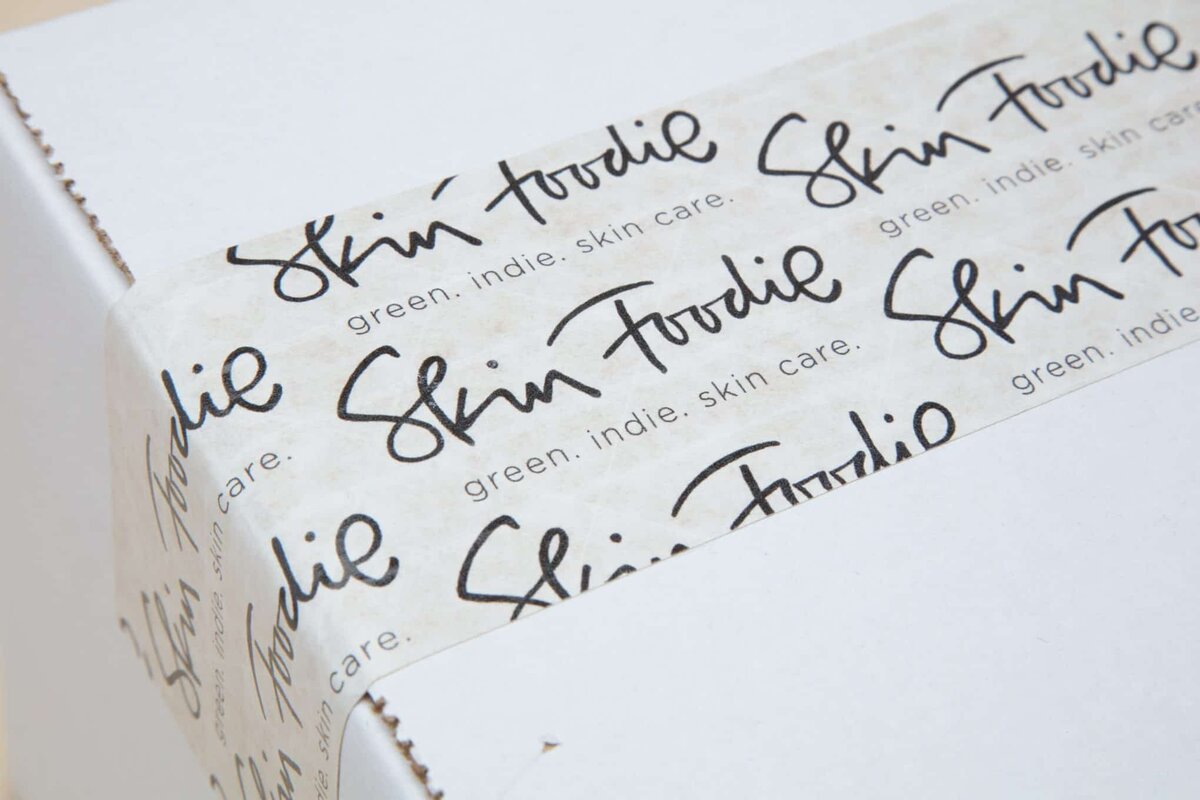 Skin Foodie
green. indie. skin care.
Skin Foodie
green. indie. skin care.
Skin Foodie
green. indie. skin care.
Skin
green. indie.
Skin Foodie
Skin Foodie
green. indie. skin care.
Skin Foodie
indie. skin care.